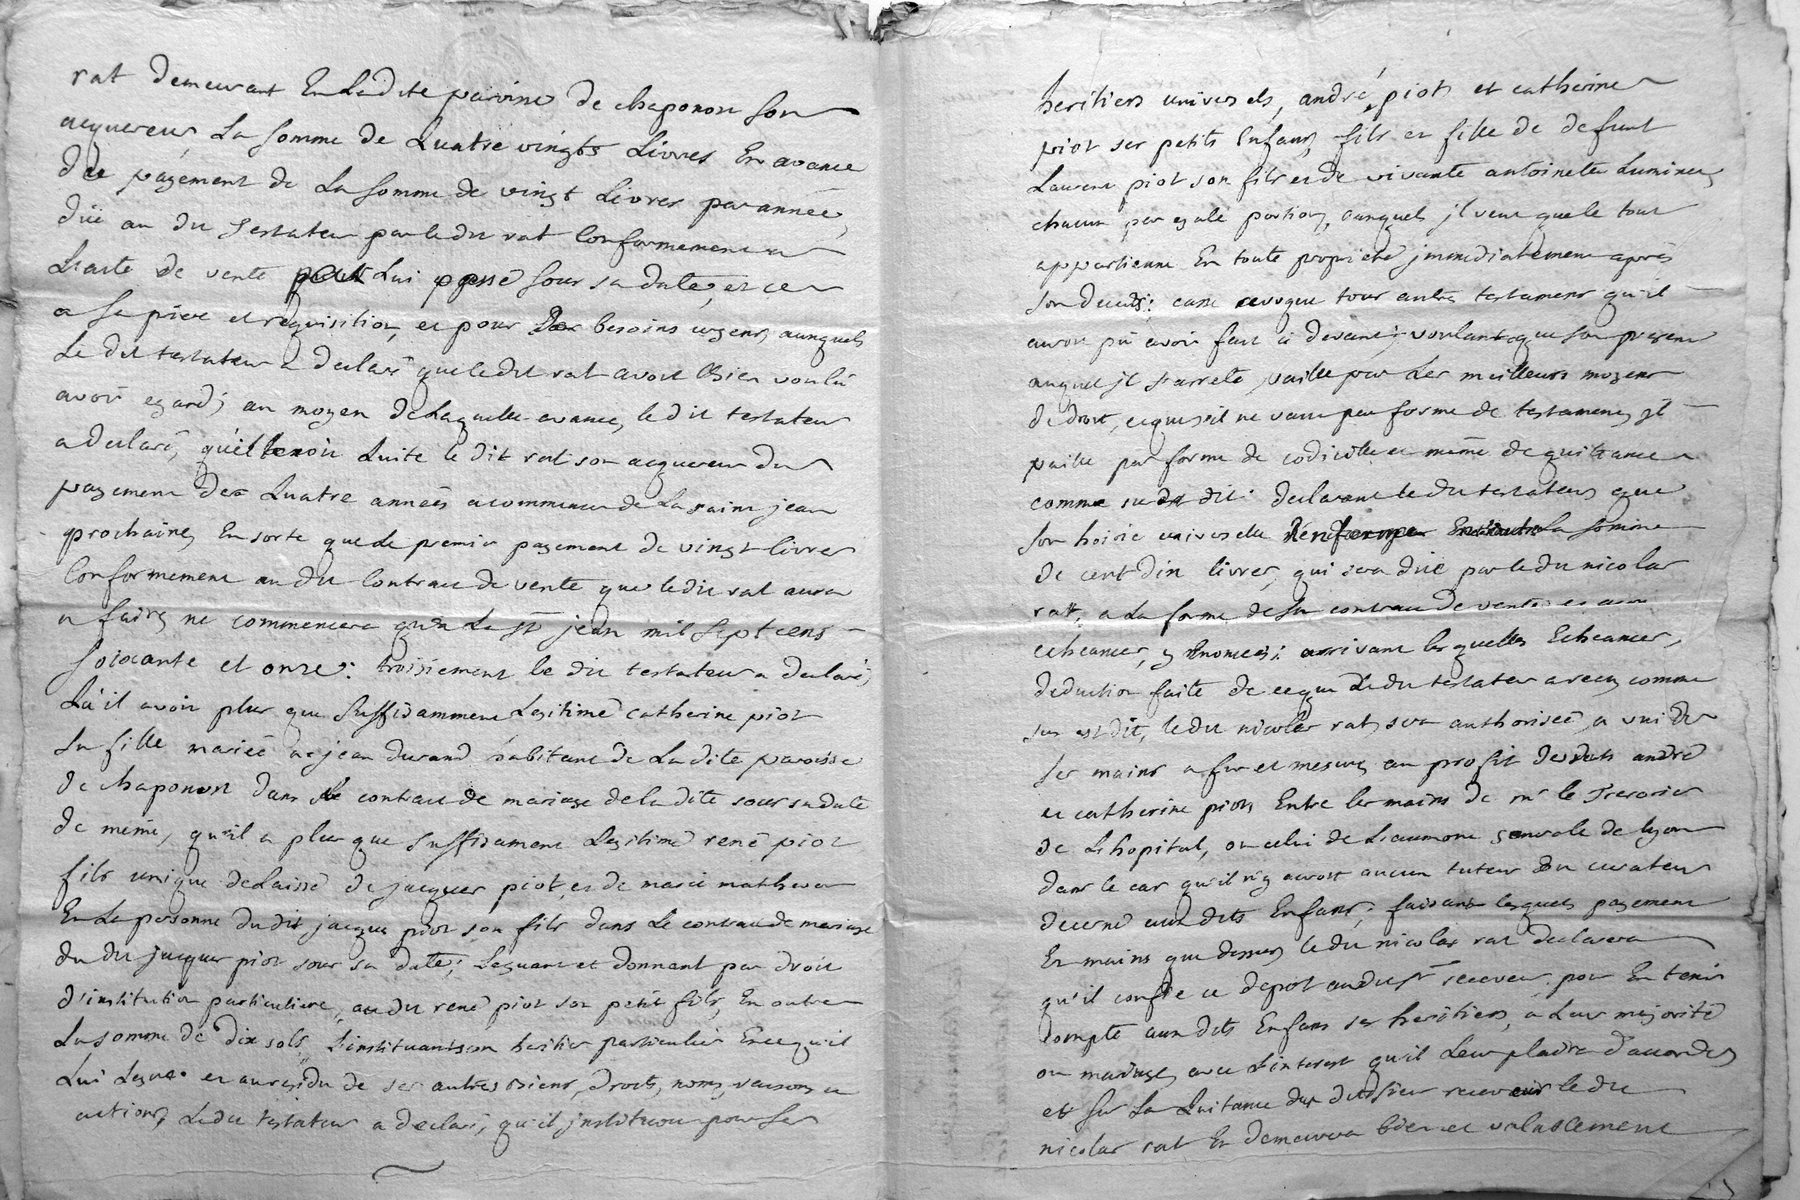 rat demeurant En Ladite paroisse de chaponon son
acquereur La somme de Quatre vingts Livres En avance
du payement de La somme de vingt Livres par année,
düe au dit Testateur par ledit rat Conformement a
L'acte de vente Lui passé sous sa date, et ce
a sa priere et requisition, et pour Des besoins urgens auxquels
Le dit testateur a declaré que ledit rat avoit Bien voulû
avoir egard; au moyen de Laquelle avance, le dit testateur
a declaré, qu'il tenoit Quite le dit rat son acquereur du
payement des Quatre années a commencer de La saint jean
prochaine, En sorte que Le premier payement de vingt livres
Conformement au dit Contract de vente que ledit rat aura
a faire ne commencera qu'a La St jean mil sept cens
soixante et onze: troisiement le dit testateur a declaré,
Qu'il avoit plus que suffisamment Legitimé catherine piot
sa fille mariée a jean durand habitant de La dite paroisse
de chaponon dans le contract de mariage de la dite sous sa date
de même, qu'il a plus que suffisament Legitimé rené piot
fils unique delaissé de jacques piot, et de marie
En La personne du dit jacques piot son fils dans Le contract de mariage
du dit jacques piot sous sa date; Leguant et donnant par droit
d'institution particuliere, au dit rené piot son petit fils, En outre
La somme de dix sols, L'instituant son heritier particulier En ce qu'il
Lui Legue. et au residu de ses autres biens, droits, noms, raisons et
actions, Ledit testateur a declaré, qu'il instituoit pour ses
heritiers universels, andré piot et catherine
piot ses petits Enfans, fils et fille de defunt
Laurent piot son fils et de vivante antoinette
chacun par egale portion, auxquels il veut que le tout
appartienne En toute proprieté immediatement après
son decès: casse revoque tous autres testaments qu'il
auroit pû avoir fait ci devant; voulant que son present
auquel il s'arrete, vaille par Les meilleurs moyens
de droit, et que s'il ne vaut par forme de testament, il
vaille par forme de codicille et même de quittance
comme susdit: declarant ledit testateur, que
son hoirie universelle La somme
de cent dix livres, qui sera düe par ledit nicolas
rat, a La forme de son contract de vente et aux
echeances, y enoncées: arrivant lesquelles Echeances,
deduction faite de ce que Ledit testateur a reçu comme
sus est dit, ledit nicolas rat sera authorisé, a vuider
ses mains a fur et mesure, au profit desdits andré
et catherine piot Entre les mains de mr le Tresorier
de L'hopital, ou celui de L'aumone generale de lyon
dans le cas qu'il n'y auroit aucun tuteur ou curateur
decerné aux dits Enfans; faisant lesquels payement
Es mains que dessus, ledit nicolas rat declarera
qu'il confie ce depot audit sr receveur, pour En tenir
Compte aux dits Enfans ses heritiers, a Leur majorité
ou mariage, avec L'interest qu'il Leur plaira d'accorder,
et sur La Quitance dudit sieur receveur ledit
nicolas rat En demeurera bien et valablement